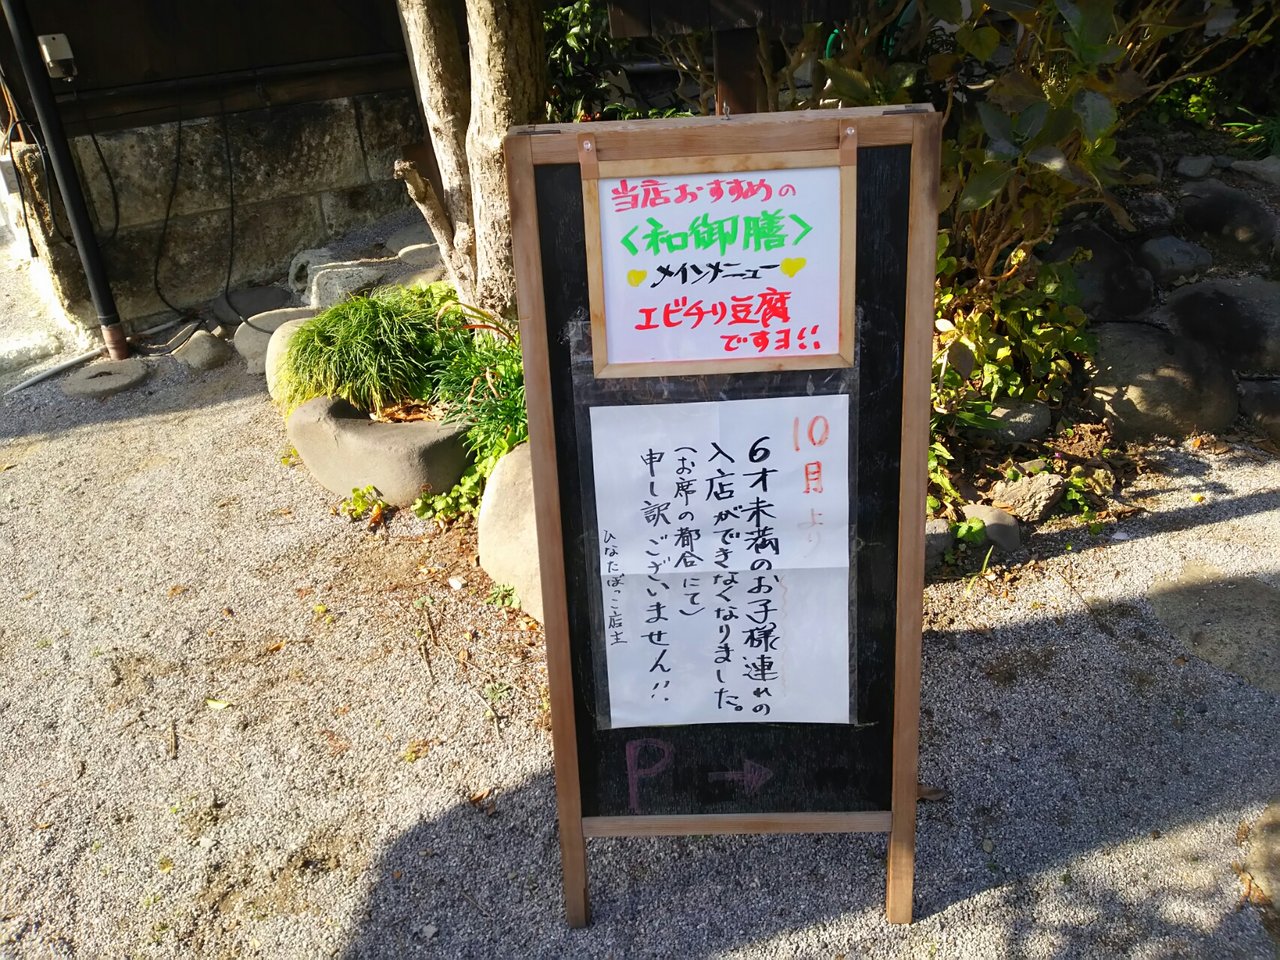 当店おすすめの
〈和御膳〉
メインメニュー
エビチリ豆腐
です!!
10月より
6才未満のお子様連れの
入店ができなくなりました。
(お席の都合にて)
申し訳ございません!!
ひなたぼっこ店主
P →